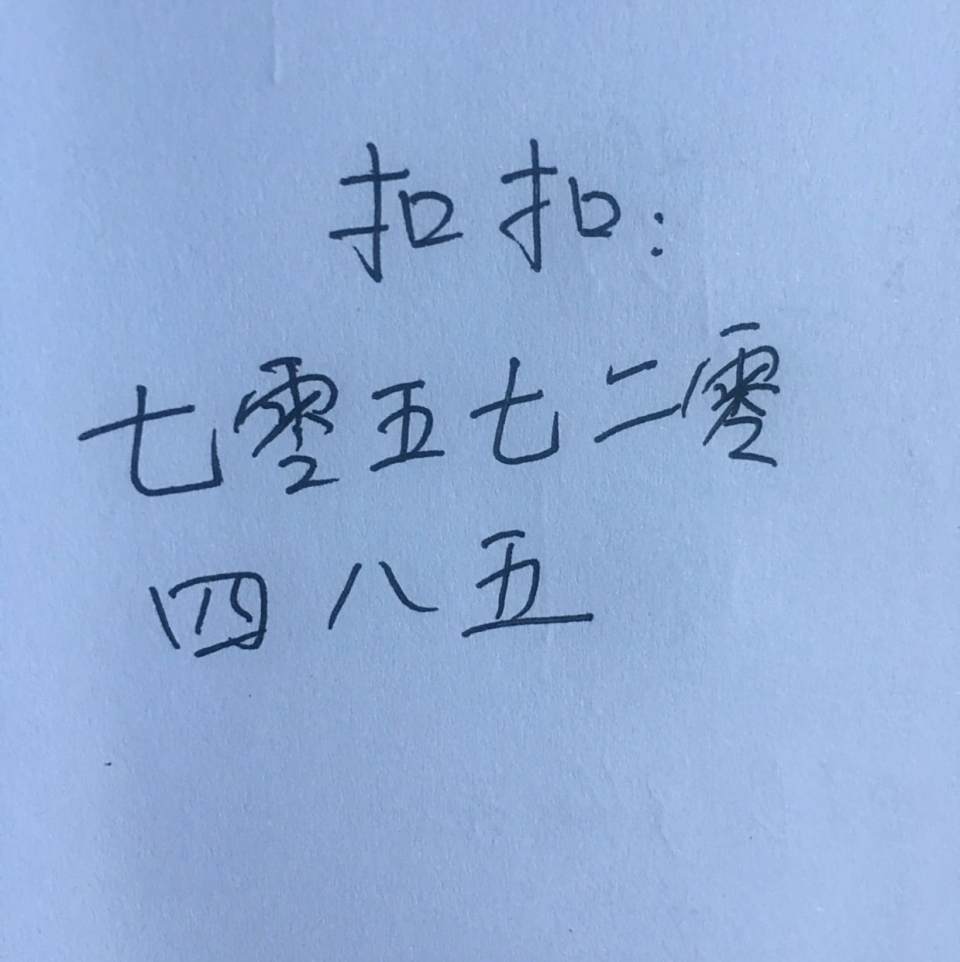 扣扣:
七零五七二零
四八五